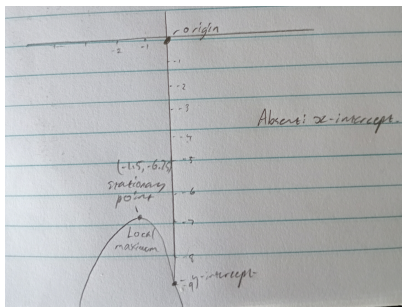 origin
-2 -1
-1
-2
-3
Absent: x-intercept.
-4
-5
(-1.5, -6.75)
stationary
point
-6
-7
Local
maximum
-8
-9 y-intercept